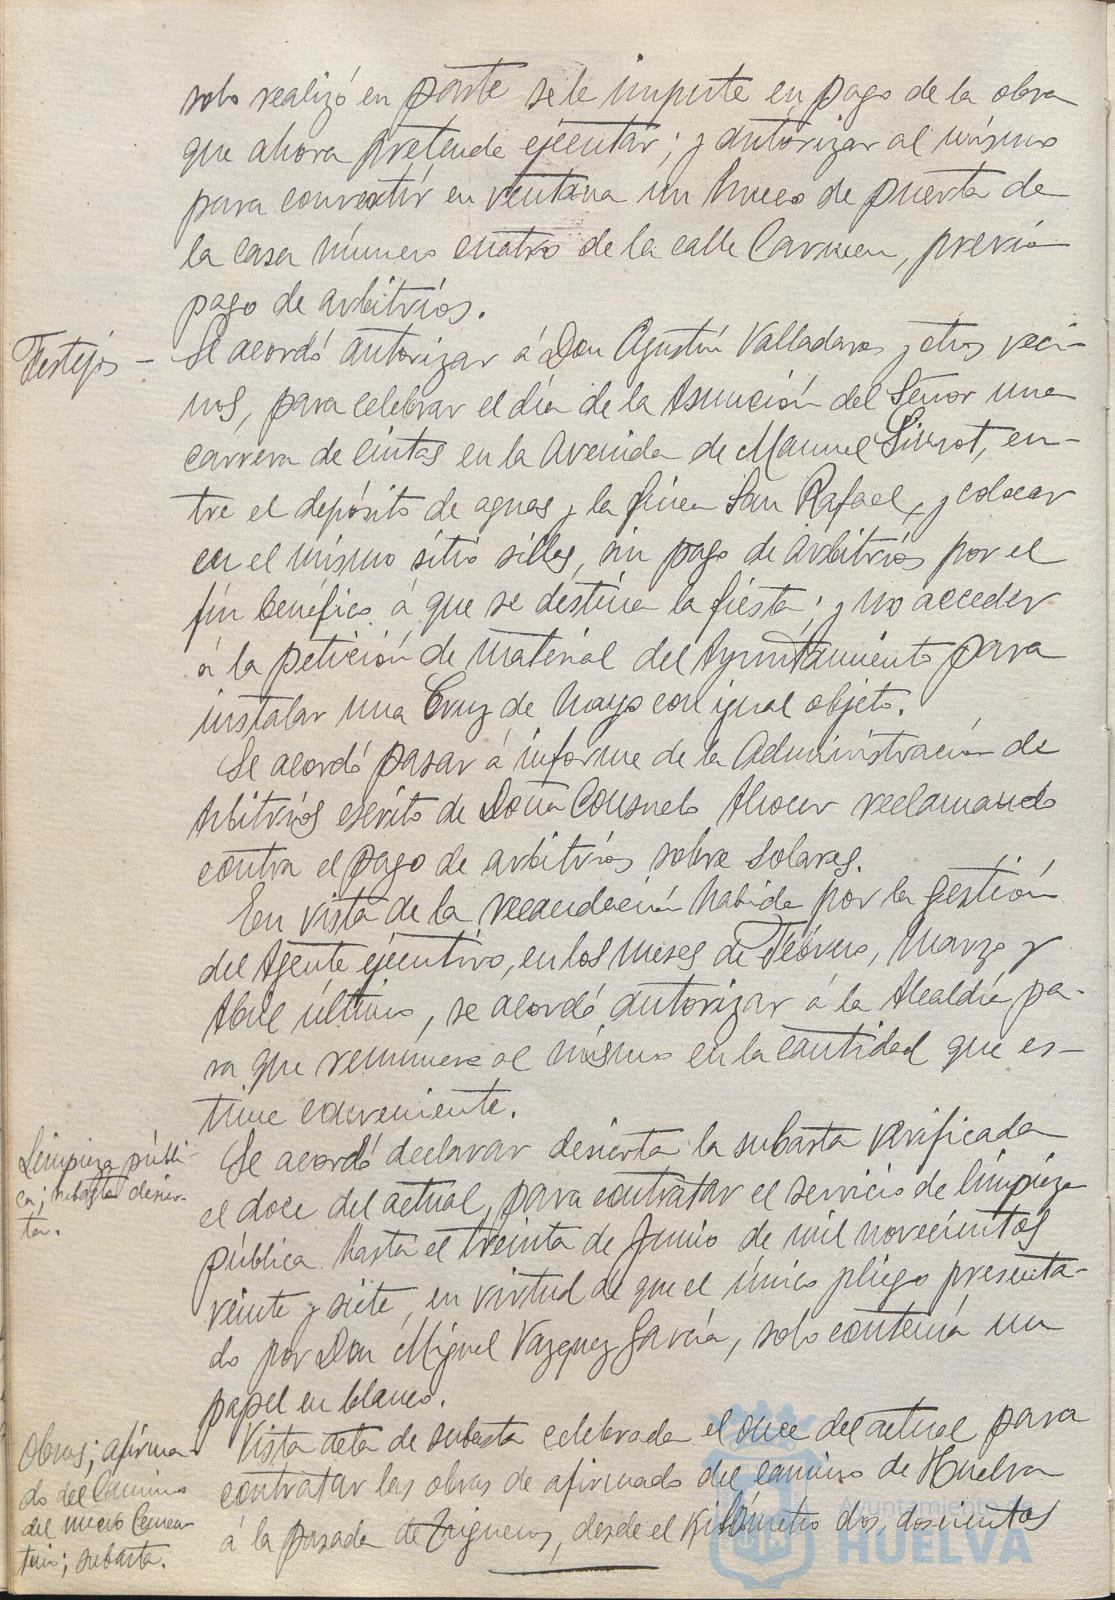 solo realizó en parte se le impute en pago de la obra
que ahora pretende ejecutar; y autorizar al mismo
para convertir en ventana un hueco de puerta de
la casa número cuatro de la calle Carmen, previo
pago de arbitrios.
Festejos – Se acordó autorizar á Don Agustín Valladares y otros veci-
nos, para celebrar el día de la Asunción del Señor una
carrera de cintas en la Avenida de Manuel Siurot, en-
tre el depósito de aguas y la finca San Rafael, y colocar
en el mismo sitio sillas, sin pago de arbitrios por el
fin benéfico á que se destina la fiesta; y no acceder
á la petición de material del Ayuntamiento para
instalar una Cruz de Mayo con igual objeto.
Se acordó pasar á informe de la Administración de
Arbitrios escrito de Doña Consuelo reclamando
contra el pago de arbitrios sobre solares.
En vista de la recaudación habida por la gestión
del Agente ejecutivo, en los meses de Febrero, Marzo y
Abril último, se acordó autorizar á la Alcaldía pa-
ra que remunere al mismo en la cantidad que es-
time conveniente.
Limpieza públi-
ca; subasta desier-
ta.
Se acordó declarar desierta la subasta verificada
el doce del actual, para contratar el servicio de limpieza
pública hasta el treinta de Junio de mil novecientos
veinte y siete, en virtud de que el único pliego presenta-
do por Don Miguel Vazquez García, solo contenía un
papel en blanco.
Obras; afirma-
do del Camino
del nuevo Cemen-
terio; subasta.
Vista acta de subasta celebrada el doce del actual para
contratar las obras de afirmado del camino de Huelva
á la pasada de Trigueros, desde el Kilómetro dos, doscientos
Ayuntamiento de
HUELVA